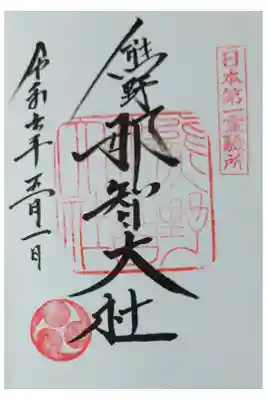 日本第一霊験所
熊野
那智大社
令和年月一日